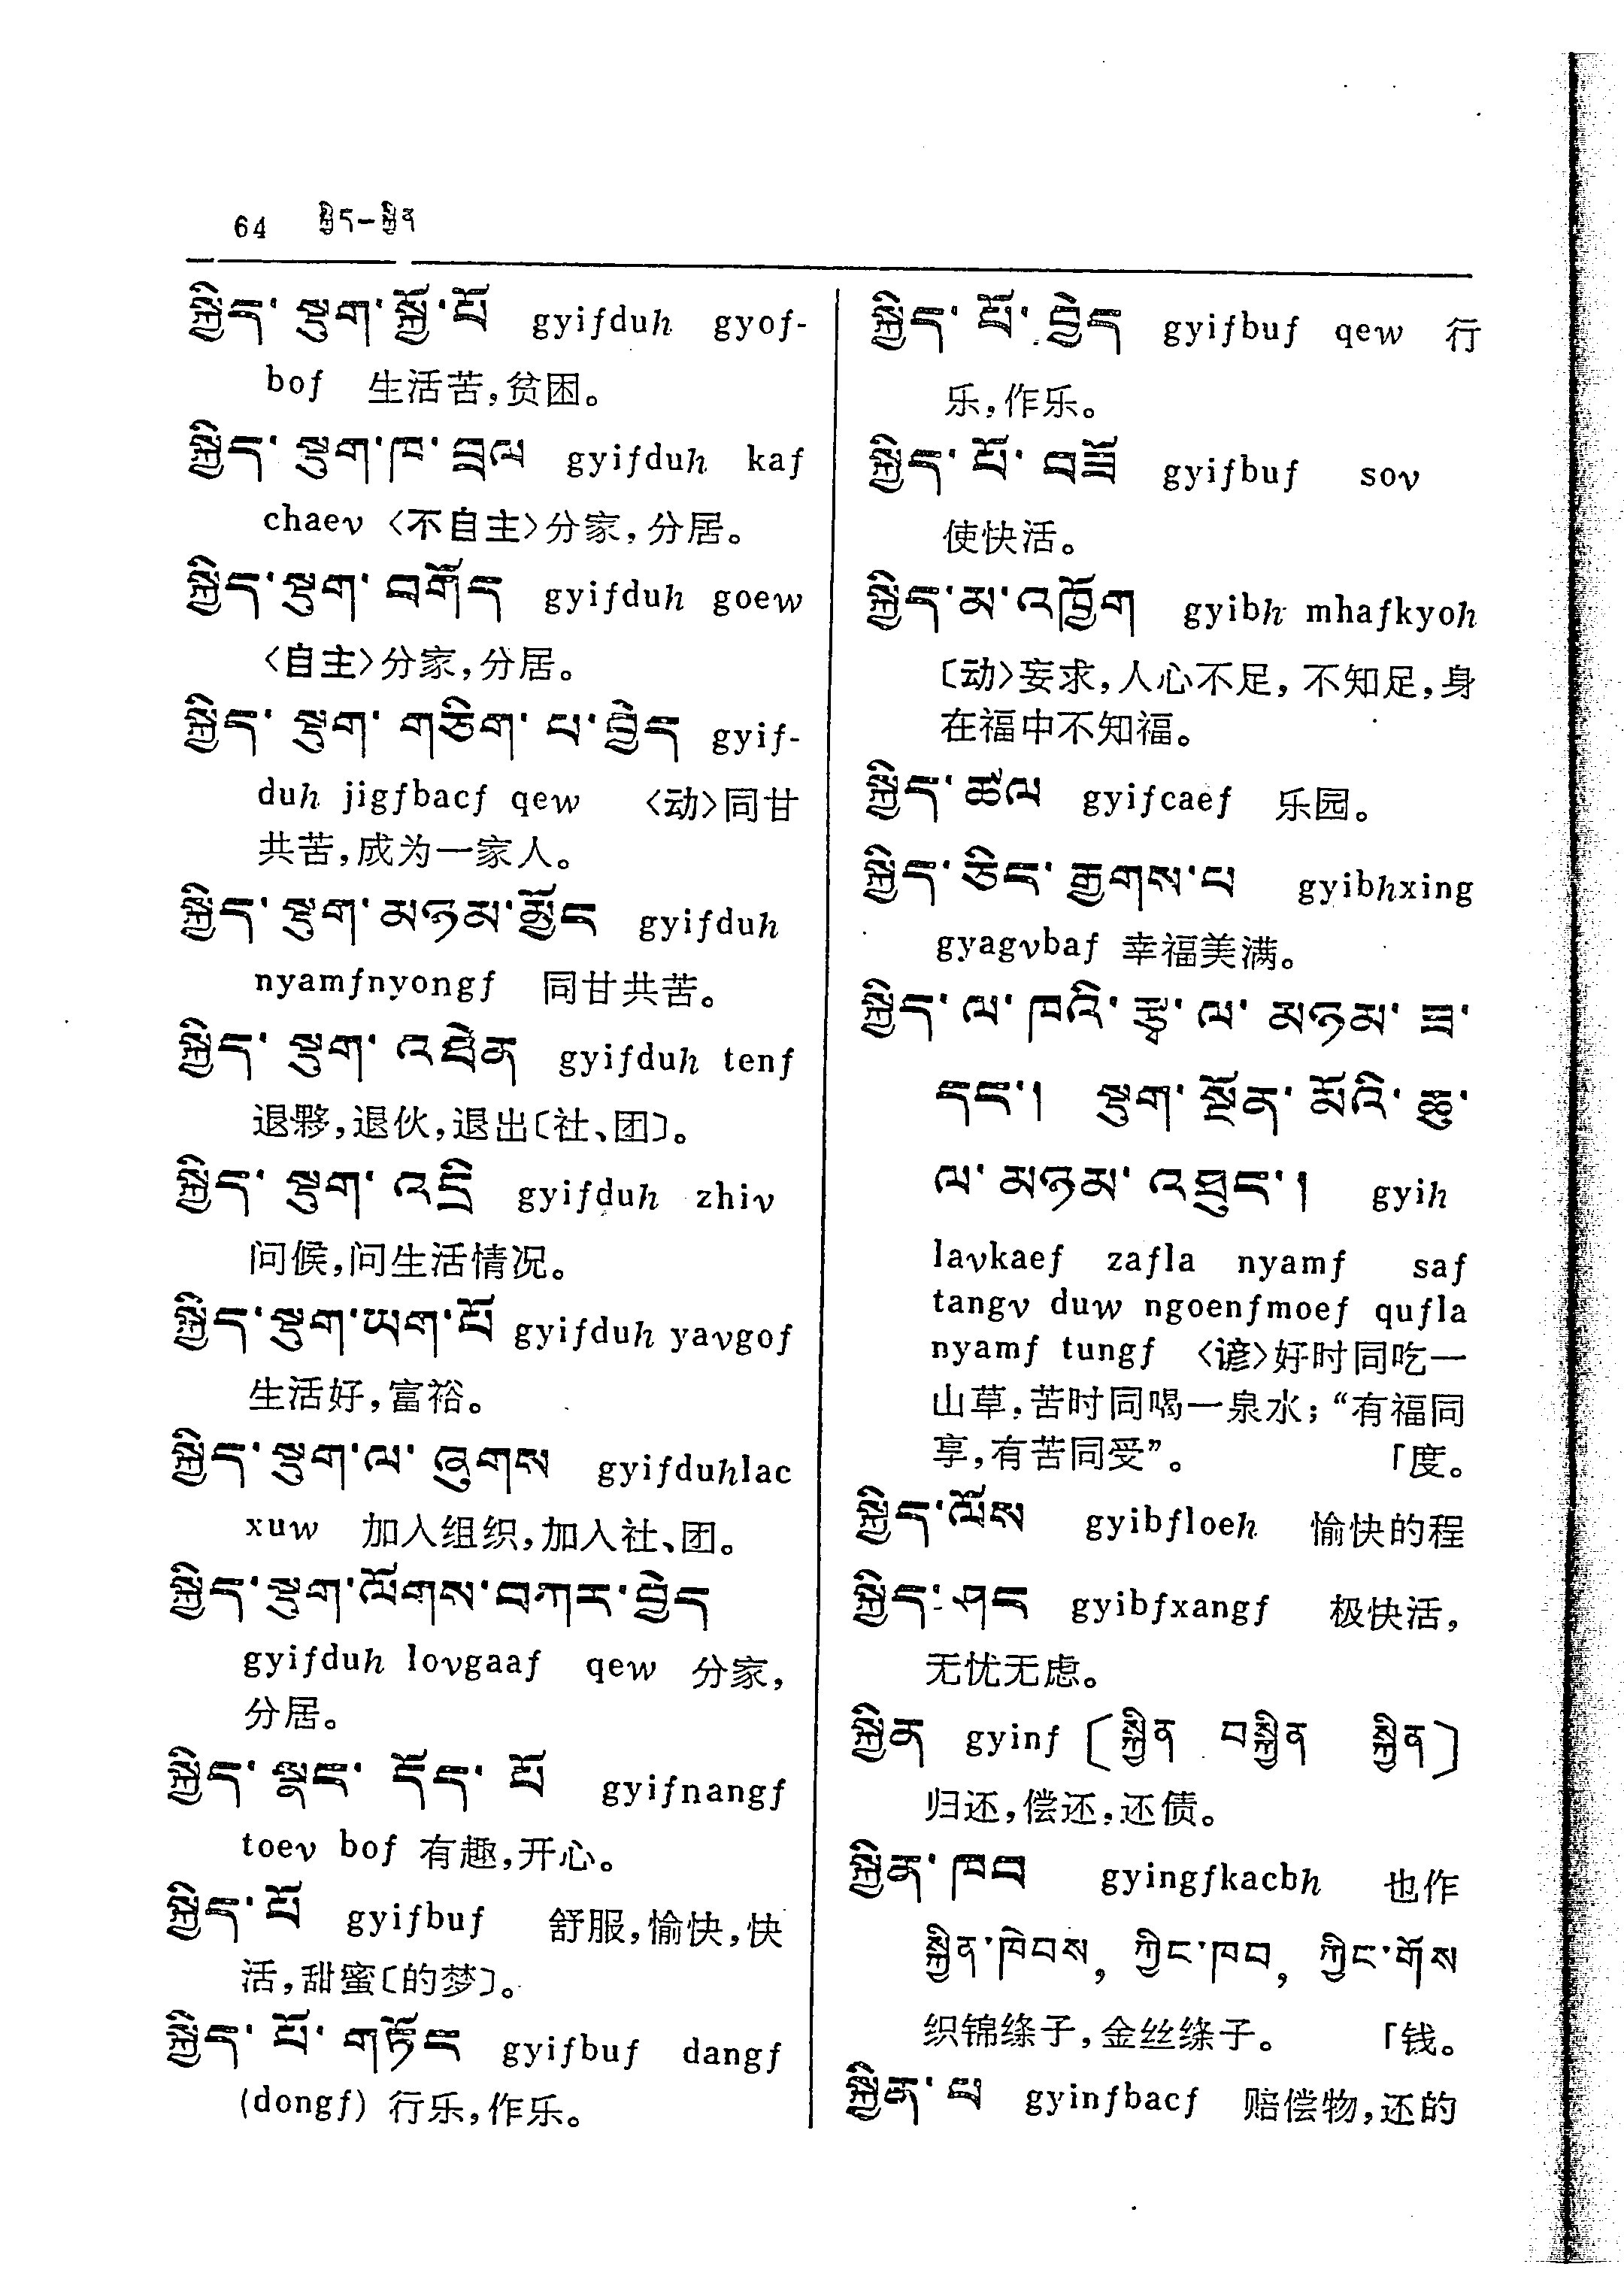 64 སྐྱིད—སྐྱིན
སྐྱིད་ སྡུག་སྐྱོ་པོ gyifduh gyof-
bof 生活苦,贫困。
སྐྱིད་ སྡུག་ཁ་ བྲལ gyifduh kaf
chaev 〈不自主〉分家,分居。
སྐྱིད་སྡུག་ བགོད gyifduh goew
〈自主〉分家,分居。
སྐྱིད་ སྡུག་ གཅིག་ པ་བྱེད gyif-
duh jigfbacf qew 〈动〉同甘
共苦,成为一家人。
སྐྱིད་སྡུག་མཉམ་མྱོང gyifduh
nyamfnyongf 同甘共苦。
སྐྱིད་ སྡུག་ འཐེན gyifduh tenf
退夥,退伙,退出〔社、团〕。
སྐྱིད་ སྡུག་ འདྲི gyifduh zhiv
问候,问生活情况。
སྐྱིད་སྡུག་ཡག་པོ gyifduh yavgof
生活好,富裕。
སྐྱིད་སྡུག་ལ་ ཞུགས gyifduhlac
xuw 加入组织,加入社、团。
སྐྱིད་སྡུག་ལོགས་བཀར་བྱེད
gyifduh lovgaaf qew 分家,
分居。
སྐྱིད་ སྣང་ དོད་ པོ gyifnangf
toev bof 有趣,开心。
སྐྱིད་པོ gyifbuf 舒服,愉快,快
活,甜蜜〔的梦〕。
སྐྱིད་ པོ་ གཏོང gyifbuf dangf
(dongf) 行乐,作乐。
སྐྱིད་ པོ་ བྱེད gyifbuf qew 行
乐,作乐。
སྐྱིད་ པོ་ བཟོ gyifbuf sov
使快活。
སྐྱིད་མ་འཁྱོག gyibh mhafkyoh
〔动〉妄求,人心不足,不知足,身
在福中不知福。
སྐྱིད་ཚལ gyifcaef 乐园。
སྐྱིད་ཅིང་ རྒྱགས་པ gyibhxing
gyagvbaf 幸福美满。
སྐྱིད་ ལ་ ཁའི་ རྩྭ་ ལ་ མཉམ་ ཟ་
དང་། སྡུག་ སྔོན་ མོའི་ ཆུ་
ལ་ མཉམ་ འཐུང་། gyih
lavkaef zafla nyamf saf
tangv duw ngoenfmoef qufla
nyamf tungf 〈谚〉好时同吃一
山草,苦时同喝一泉水;“有福同
享,有苦同受”。 「度。
སྐྱིད་ལོས gyibfloeh 愉快的程
སྐྱིད་ ཤང gyibfxangf 极快活,
无忧无虑。
སྐྱིན gyinf 〔སྐྱིན བསྐྱིན སྐྱིན〕
归还,偿还,还债。
སྐྱིན་ ཁབ gyingfkacbh 也作
སྐྱིན་ཁེབས, ཀྱིང་ཁབ, ཀྱིང་གོས
织锦绦子,金丝绦子。 「钱。
སྐྱིན་ པ gyinfbacf 赔偿物,还的